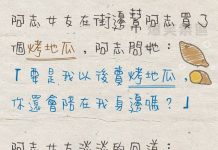 阿志女友在街邊幫阿志買了
個烤地瓜，阿志問她：
「要是我以後賣烤地瓜，
你還會陪在我身邊嗎？」
阿志女友淡淡的回道：